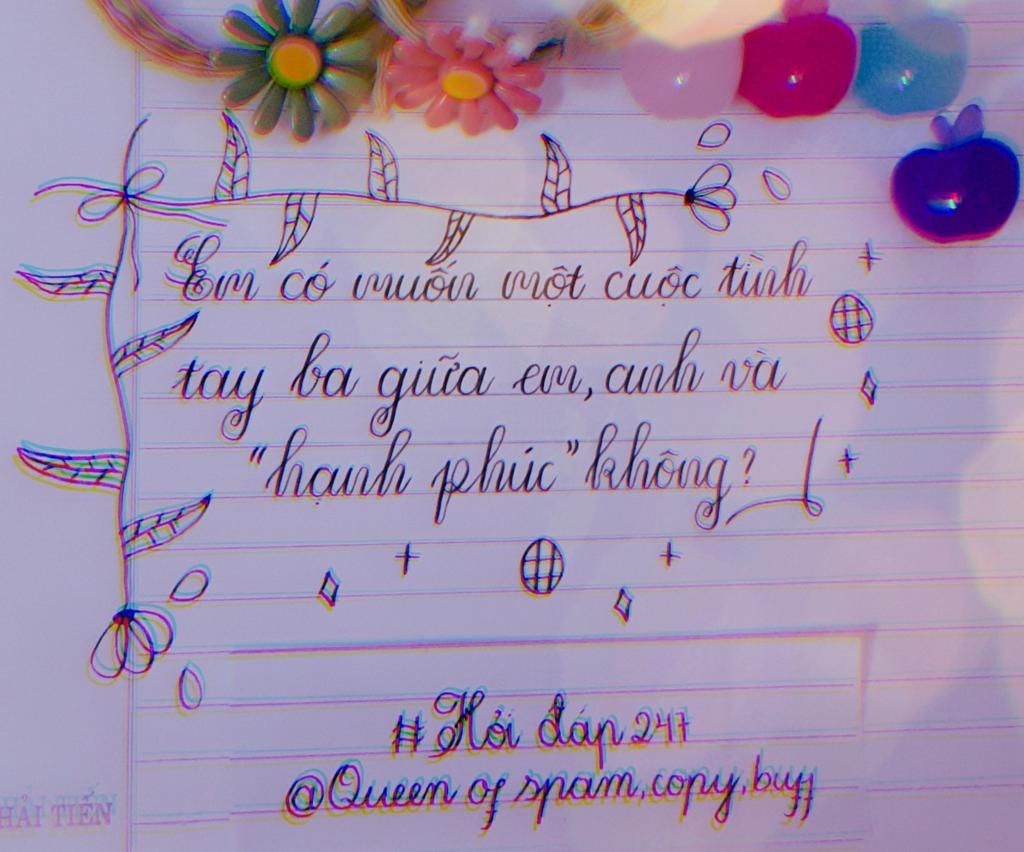 Em có muốn một cuộc tình
tay ba giữa em, anh và
"hạnh phúc" không?
#Hỏi đáp 247
@Queen of spam, copy, buff
HẢI TIẾN